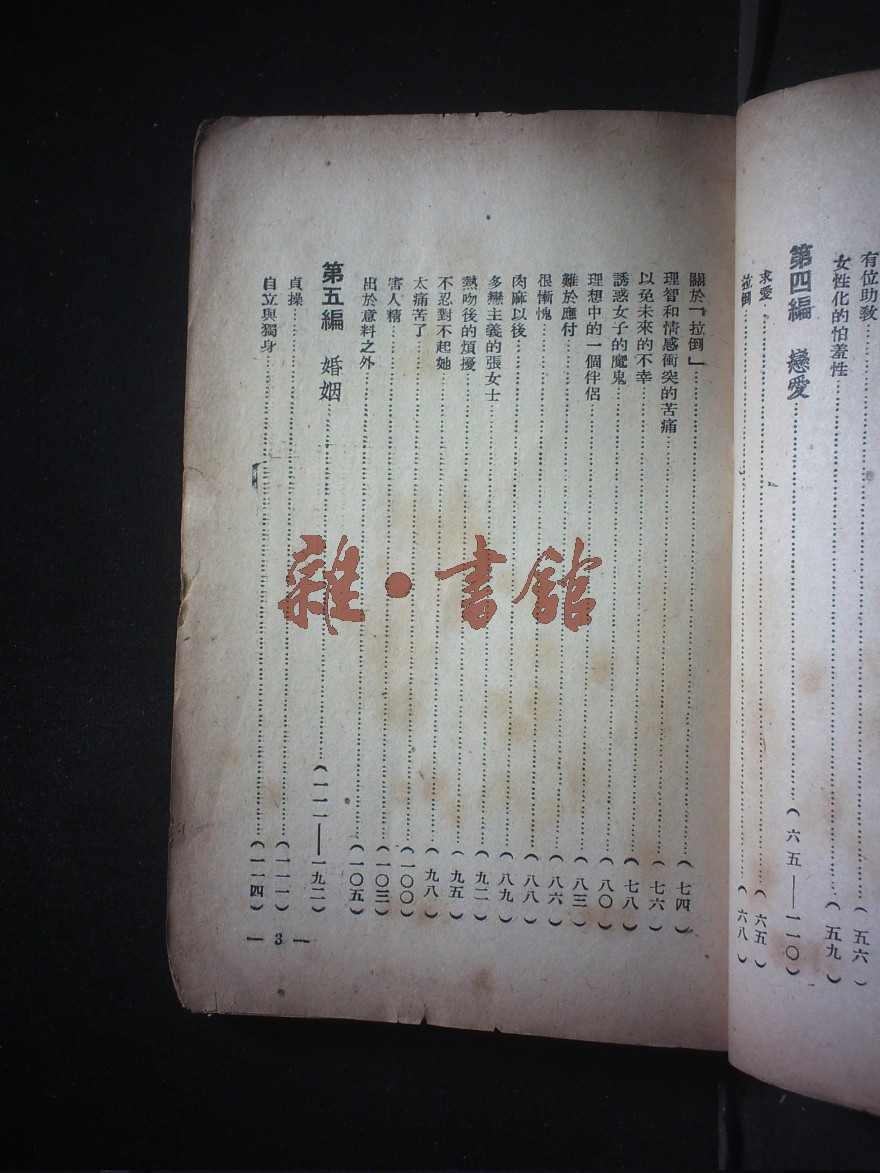 有位助教……(五六)
女性化的怕羞性……(五九)
第四編 戀愛……(六五——一一〇)
求愛……(六五)
拉倒……(六八)
關於「拉倒」……(七四)
理智和情感衝突的苦痛……(七六)
以免未來的不幸……(七八)
誘惑女子的魔鬼……(八〇)
理想中的一個伴侶……(八三)
難於應付……(八六)
很慚愧……(八八)
肉麻以後……(八九)
多戀主義的張女士……(九二)
熱吻後的煩擾……(九五)
不忍對不起她……(九八)
太痛苦了……(一〇〇)
害人精……(一〇三)
出於意料之外……(一〇五)
第五編 婚姻……(一一一——一九二)
貞操……(一一一)
自立與獨身……(一一四)
— 3 —
雜·書館